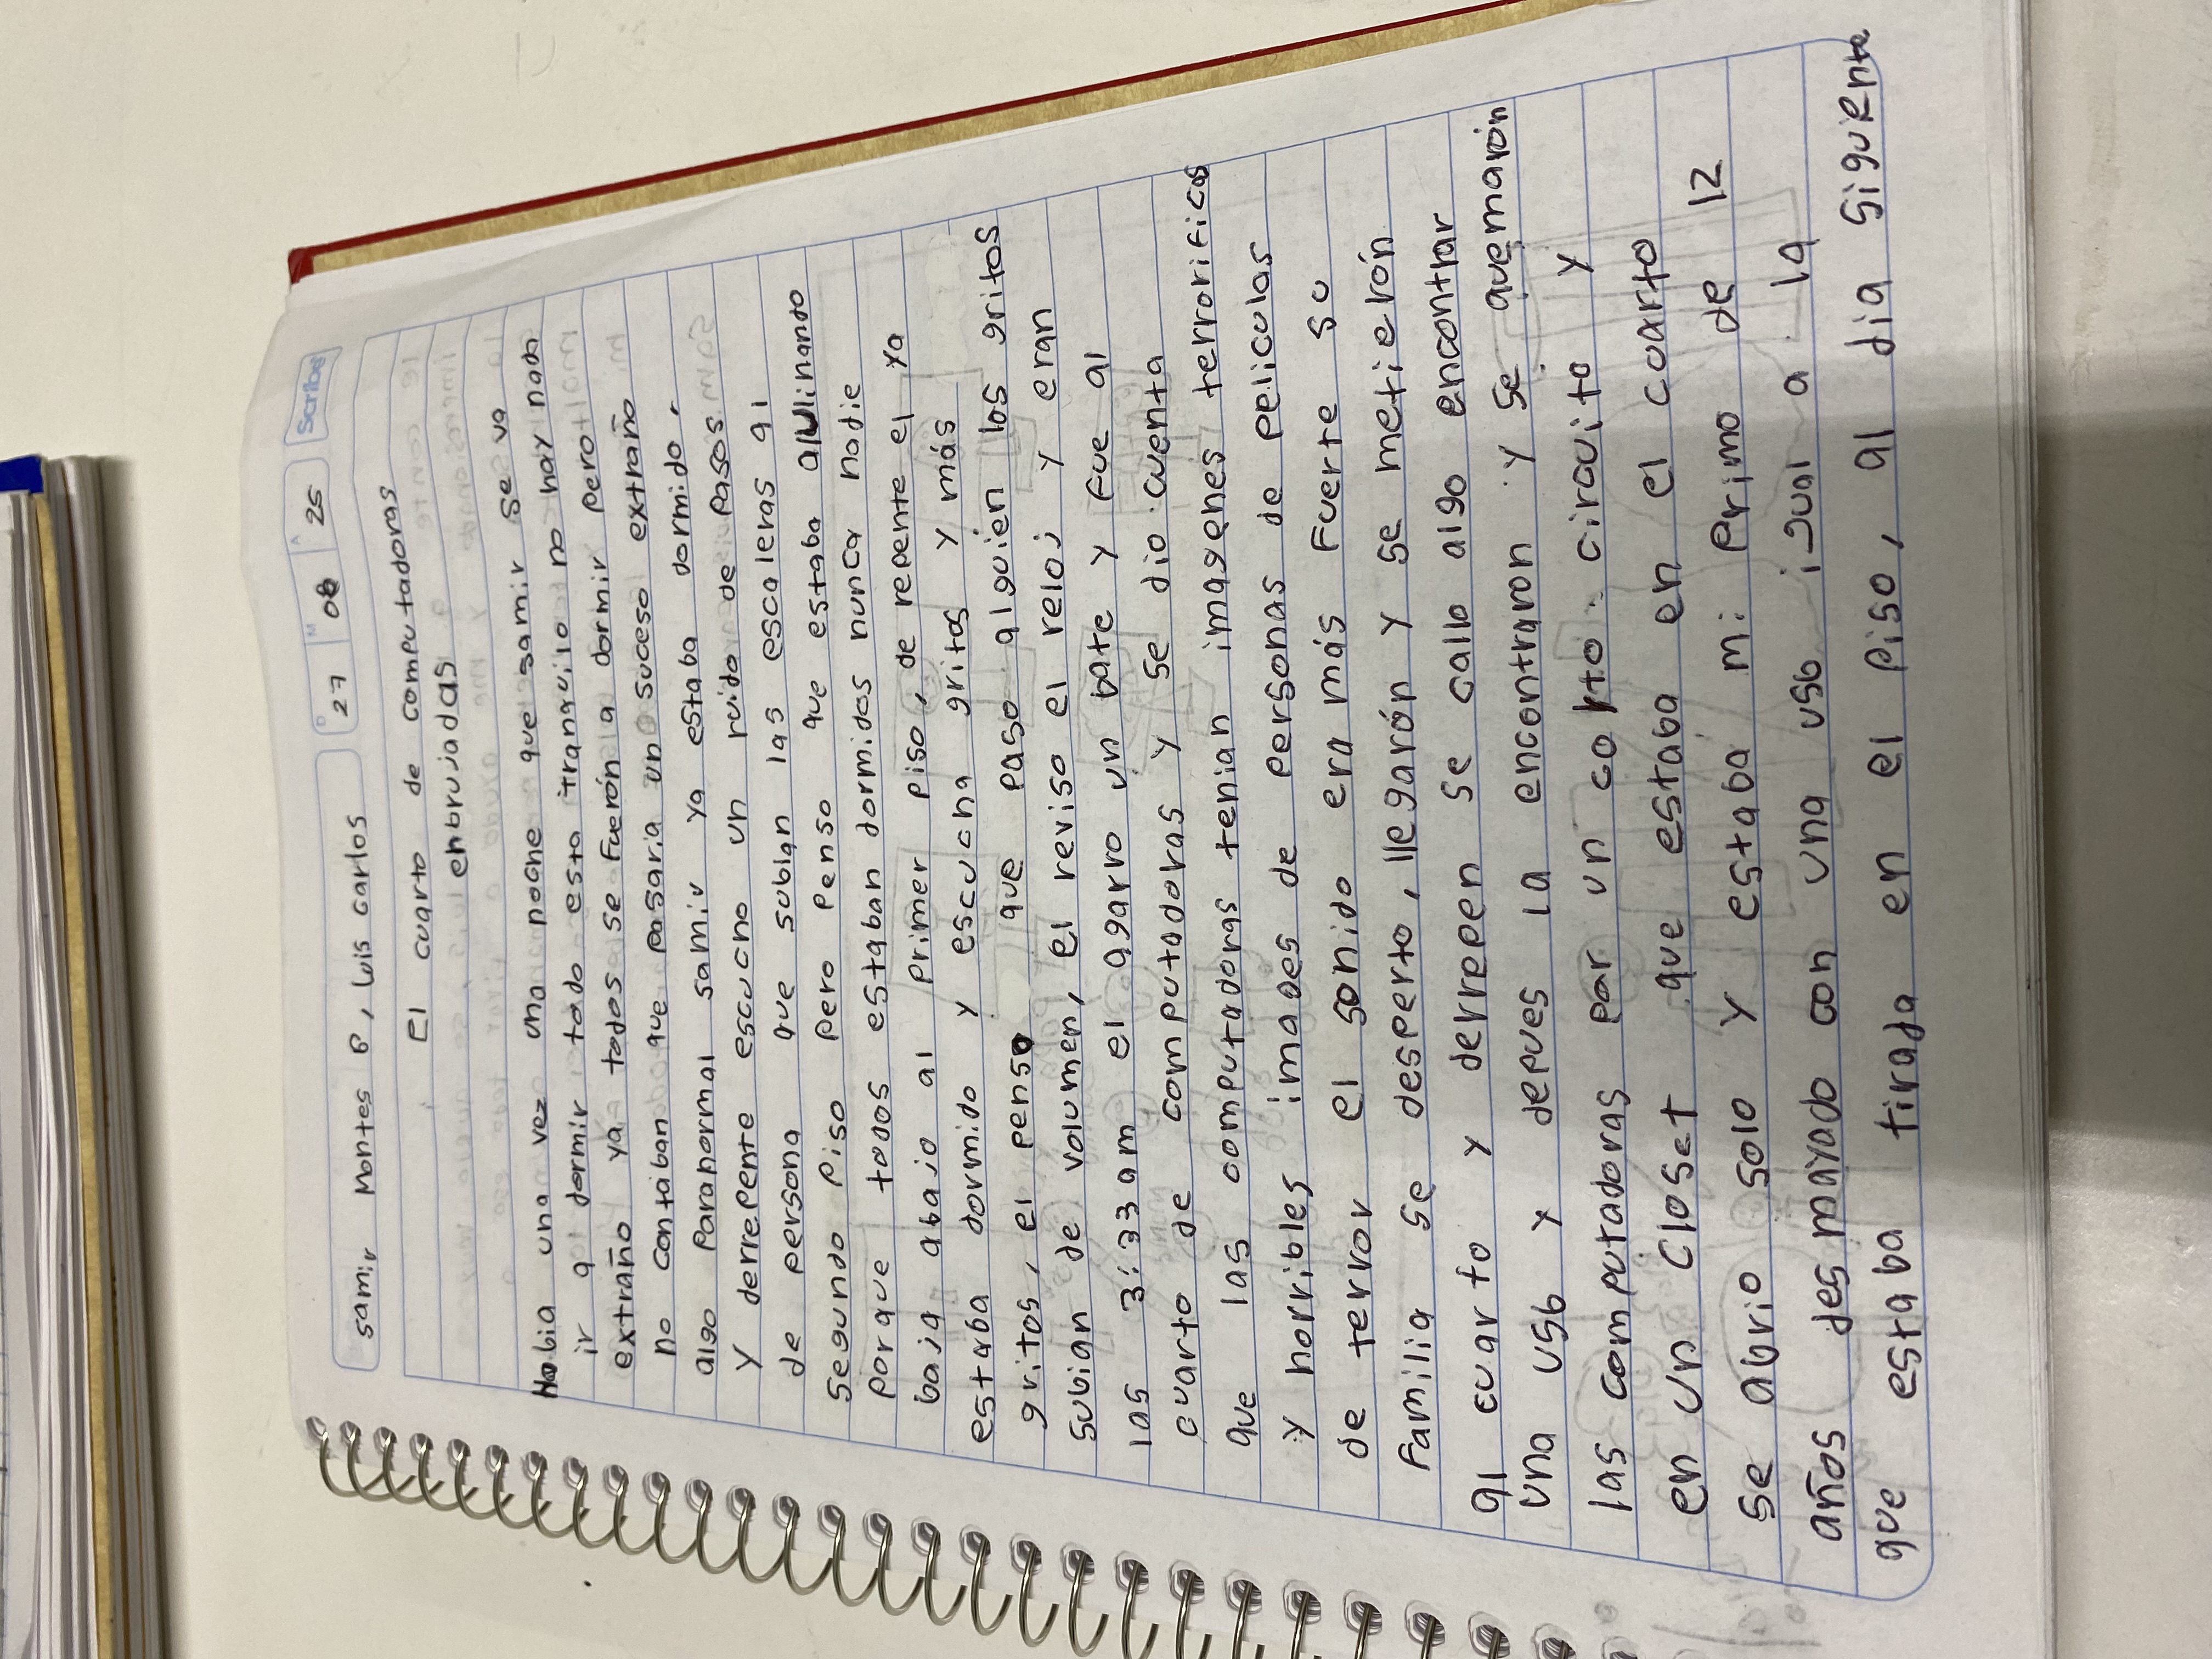 samir Montes B, Luis carlos
D 27 M 08 A 25 Scribe
El cuarto de computadoras
enbrujadas
Habia una vez una noche que samir se va
ir a dormir todo esta tranquilo no hay nada
extraño ya todos se fuerón a dormir pero
no contaban que pasaria un suceso extraño
algo paranormal samir ya estaba dormido,
y derrepente escucho un ruido de pasos
de persona que subian las escaleras al
segundo piso pero penso que estaba
porque todos estaban dormidos nunca nadie
baja abajo al primer piso, de repente el ya
estarba dormido y escucha gritos y más
gritos, el penso que paso alguien los gritos
subian de volumen, el reviso el reloj y eran
las 3:33am el agarro un bate y fue al
cuarto de computadoras y se dio cuenta
que las computadoras tenian imagenes terrorificas
y horribles imades de personas de peliculas
de terror el sonido era más fuerte su
familia se desperto, llegarón y se metierón
al cuarto y derrepen se callo algo encontrar
una usb y depues la encontraron y se quemarón
las computadoras por un corto circuito y
en un closet que estaba en el cuarto
se abrio solo y estaba mi primo de 12
años desmayado con una usb igual a la
que estaba tirada en el piso, al dia siguente